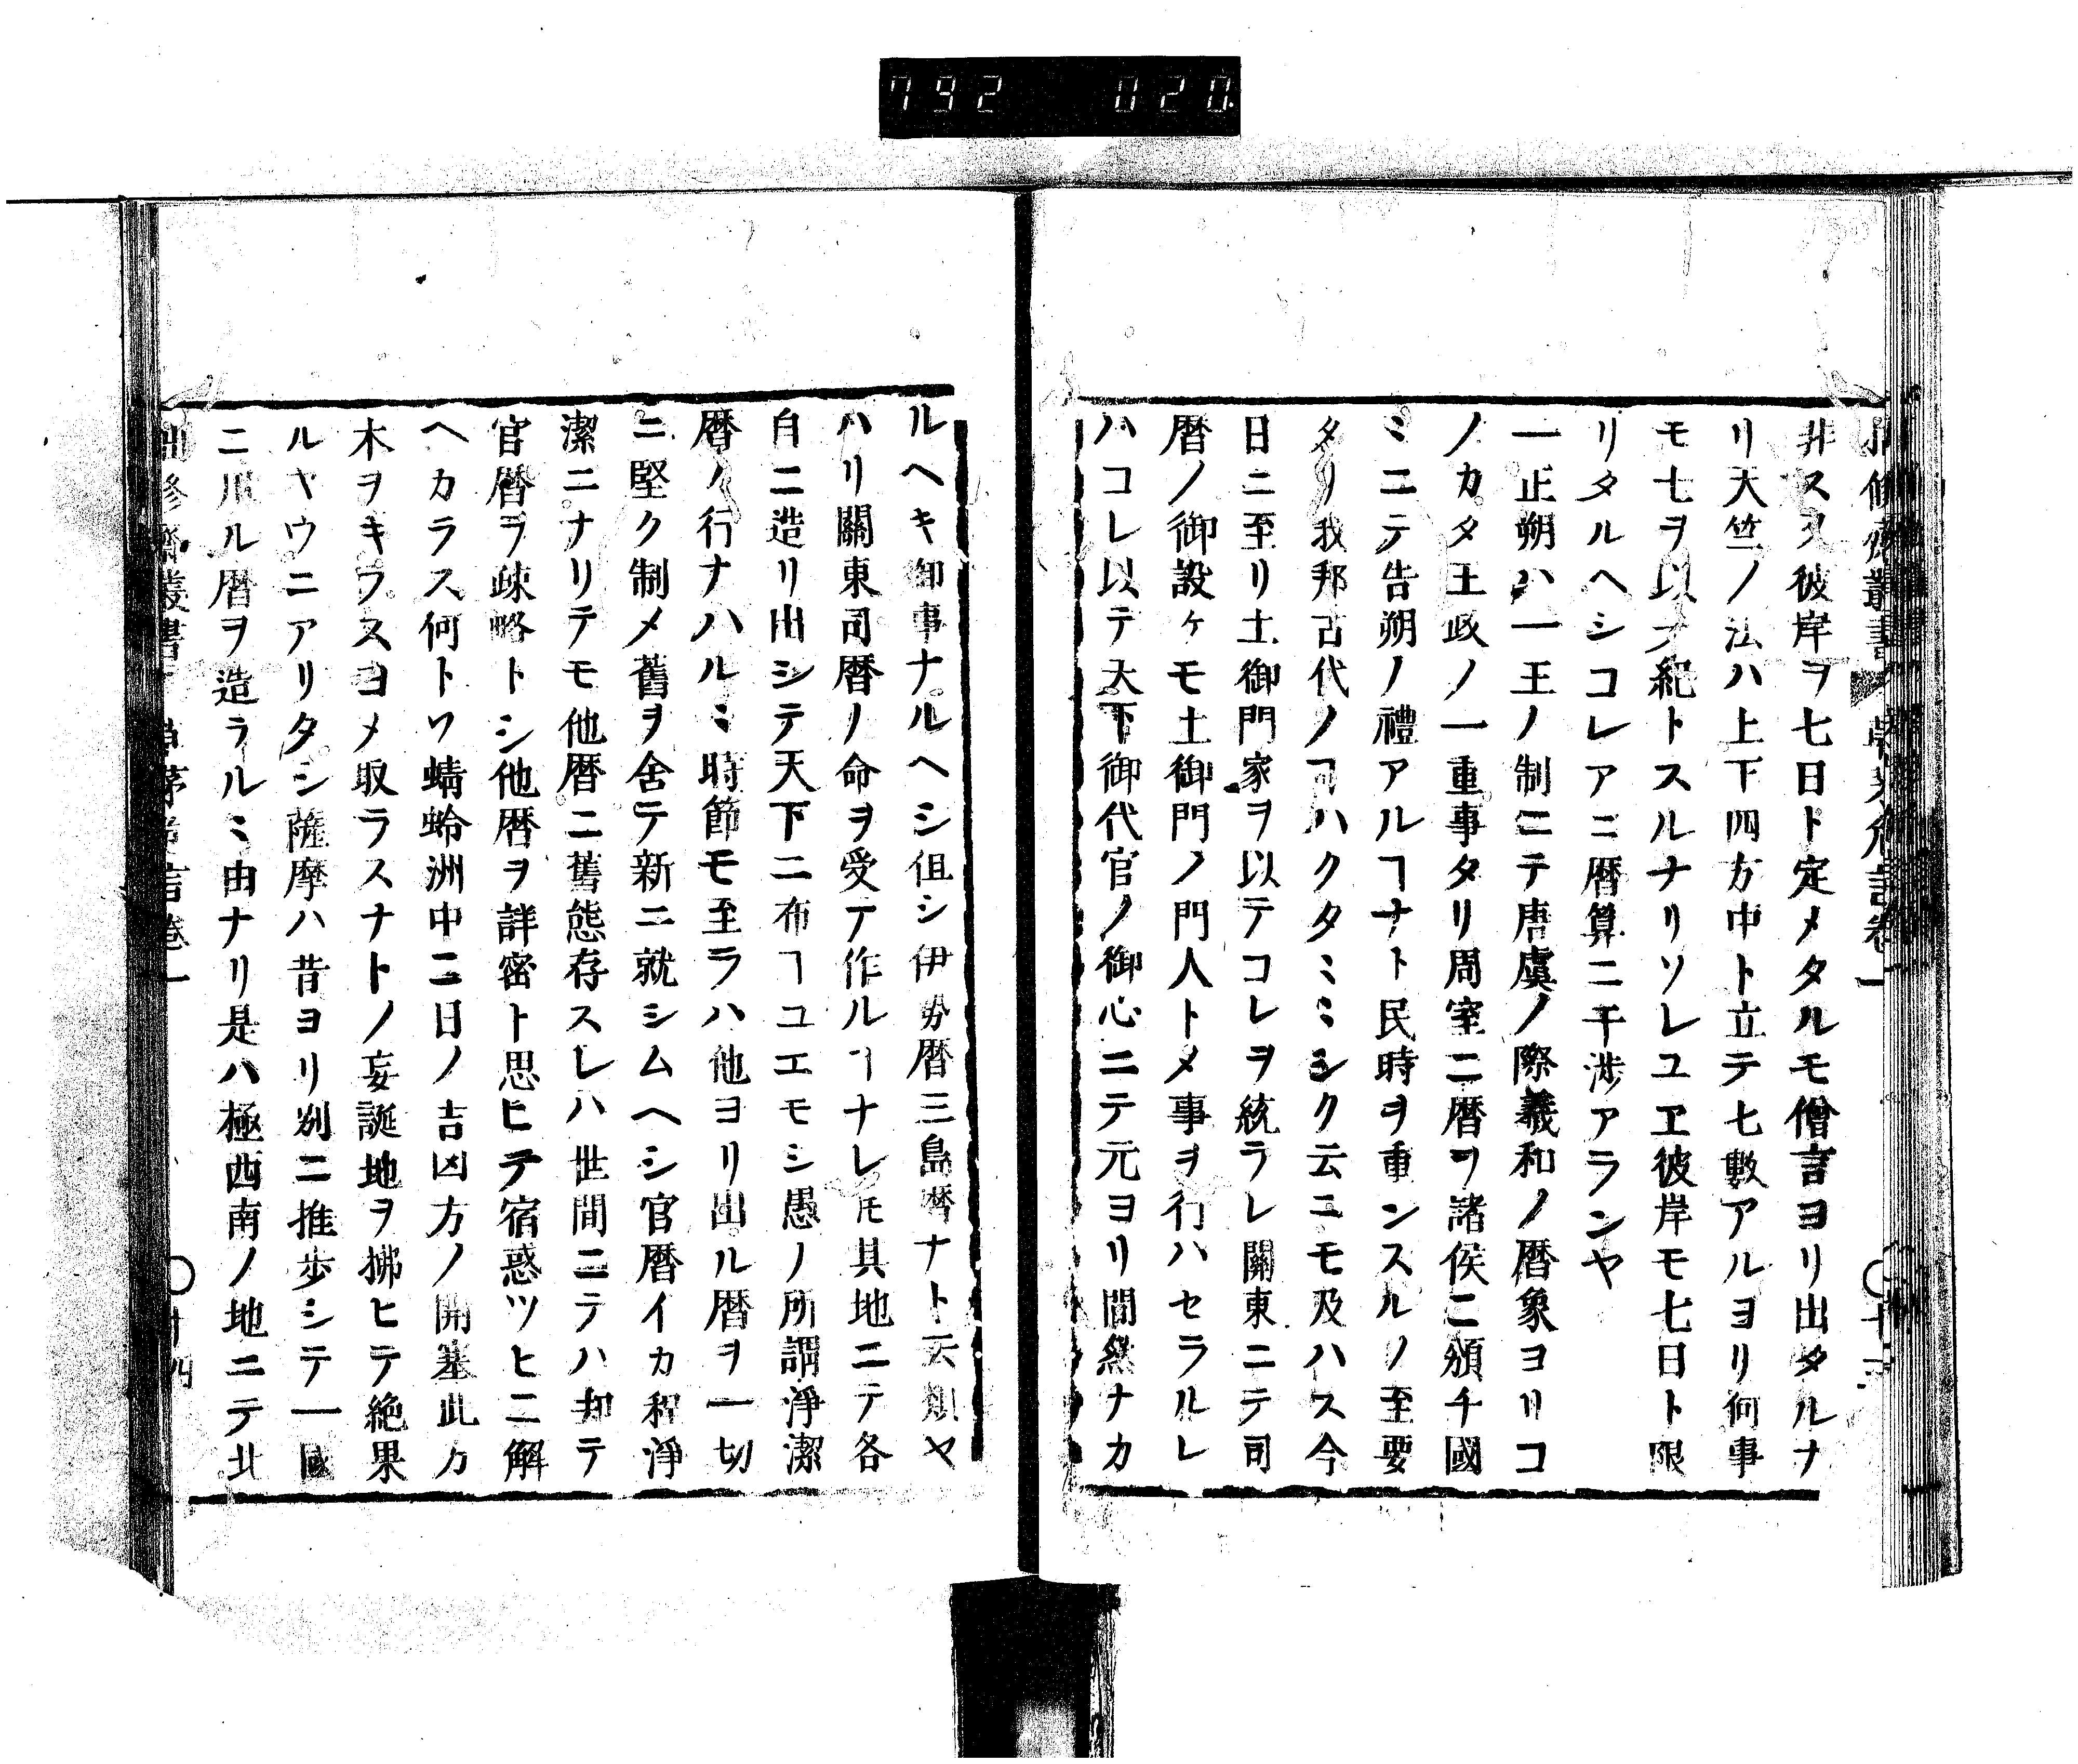 792 020
非ス又彼岸ヲ七日ト定メタルモ僧言ヨリ出タルナ
リ天竺ノ法ハ上下四方中ト立テ七數アルヨリ何事
モ七ヲ以テ紀トスルナリソレユヱ彼岸モ七日ト限
リタルヘシコレアニ暦算ニ干渉アランヤ
一正朔ハ一王ノ制ニテ唐虞ノ際羲和ノ暦象ヨリコ
ノカタ王政ノ一重事タリ周室ニ暦ヲ諸侯ニ頒チ國
ミニテ告朔ノ禮アルヿナト民時ヲ重ンスルノ至要
タリ我邦古代ノヿハクタミミシク云ニモ及ハス今
日ニ至リ土御門家ヲ以テコレヲ統ラレ關東ニテ司
暦ノ御設ケモ土御門ノ門人トメ事ヲ行ハセラルレ
ハコレ以テ天下御代官ノ御心ニテ元ヨリ間然ナカ
ルヘキ御事ナルヘシ但シ伊勢暦三島暦ナト云類ヤ
ハリ關東司暦ノ命ヲ受テ作ルヿナレモ其地ニテ各
自ニ造リ出シテ天下ニ布ヿユエモシ愚ノ所謂淨潔
暦ノ行ナハルミ時節モ至ラハ他ヨリ出ル暦ヲ一切
ニ堅ク制メ舊ヲ舍テ新ニ就シムヘシ官暦イカ程淨
潔ニナリテモ他暦ニ舊態存スレハ世間ニテハ却テ
官暦ヲ疎略トシ他暦ヲ詳密ト思ヒテ宿惑ツヒニ解
ヘカラス何トソ蜻蛉洲中ニ日ノ吉凶方ノ開塞此カ
木ヲキラスヨメ取ラスナトノ妄誕地ヲ拂ヒテ絶果
ルヤウニアリタシ薩摩ハ昔ヨリ別ニ推歩シテ一國
ニ用ル暦ヲ造ラルミ由ナリ是ハ極西南ノ地ニテ北
叢書 茅 言卷一 〇 廿四